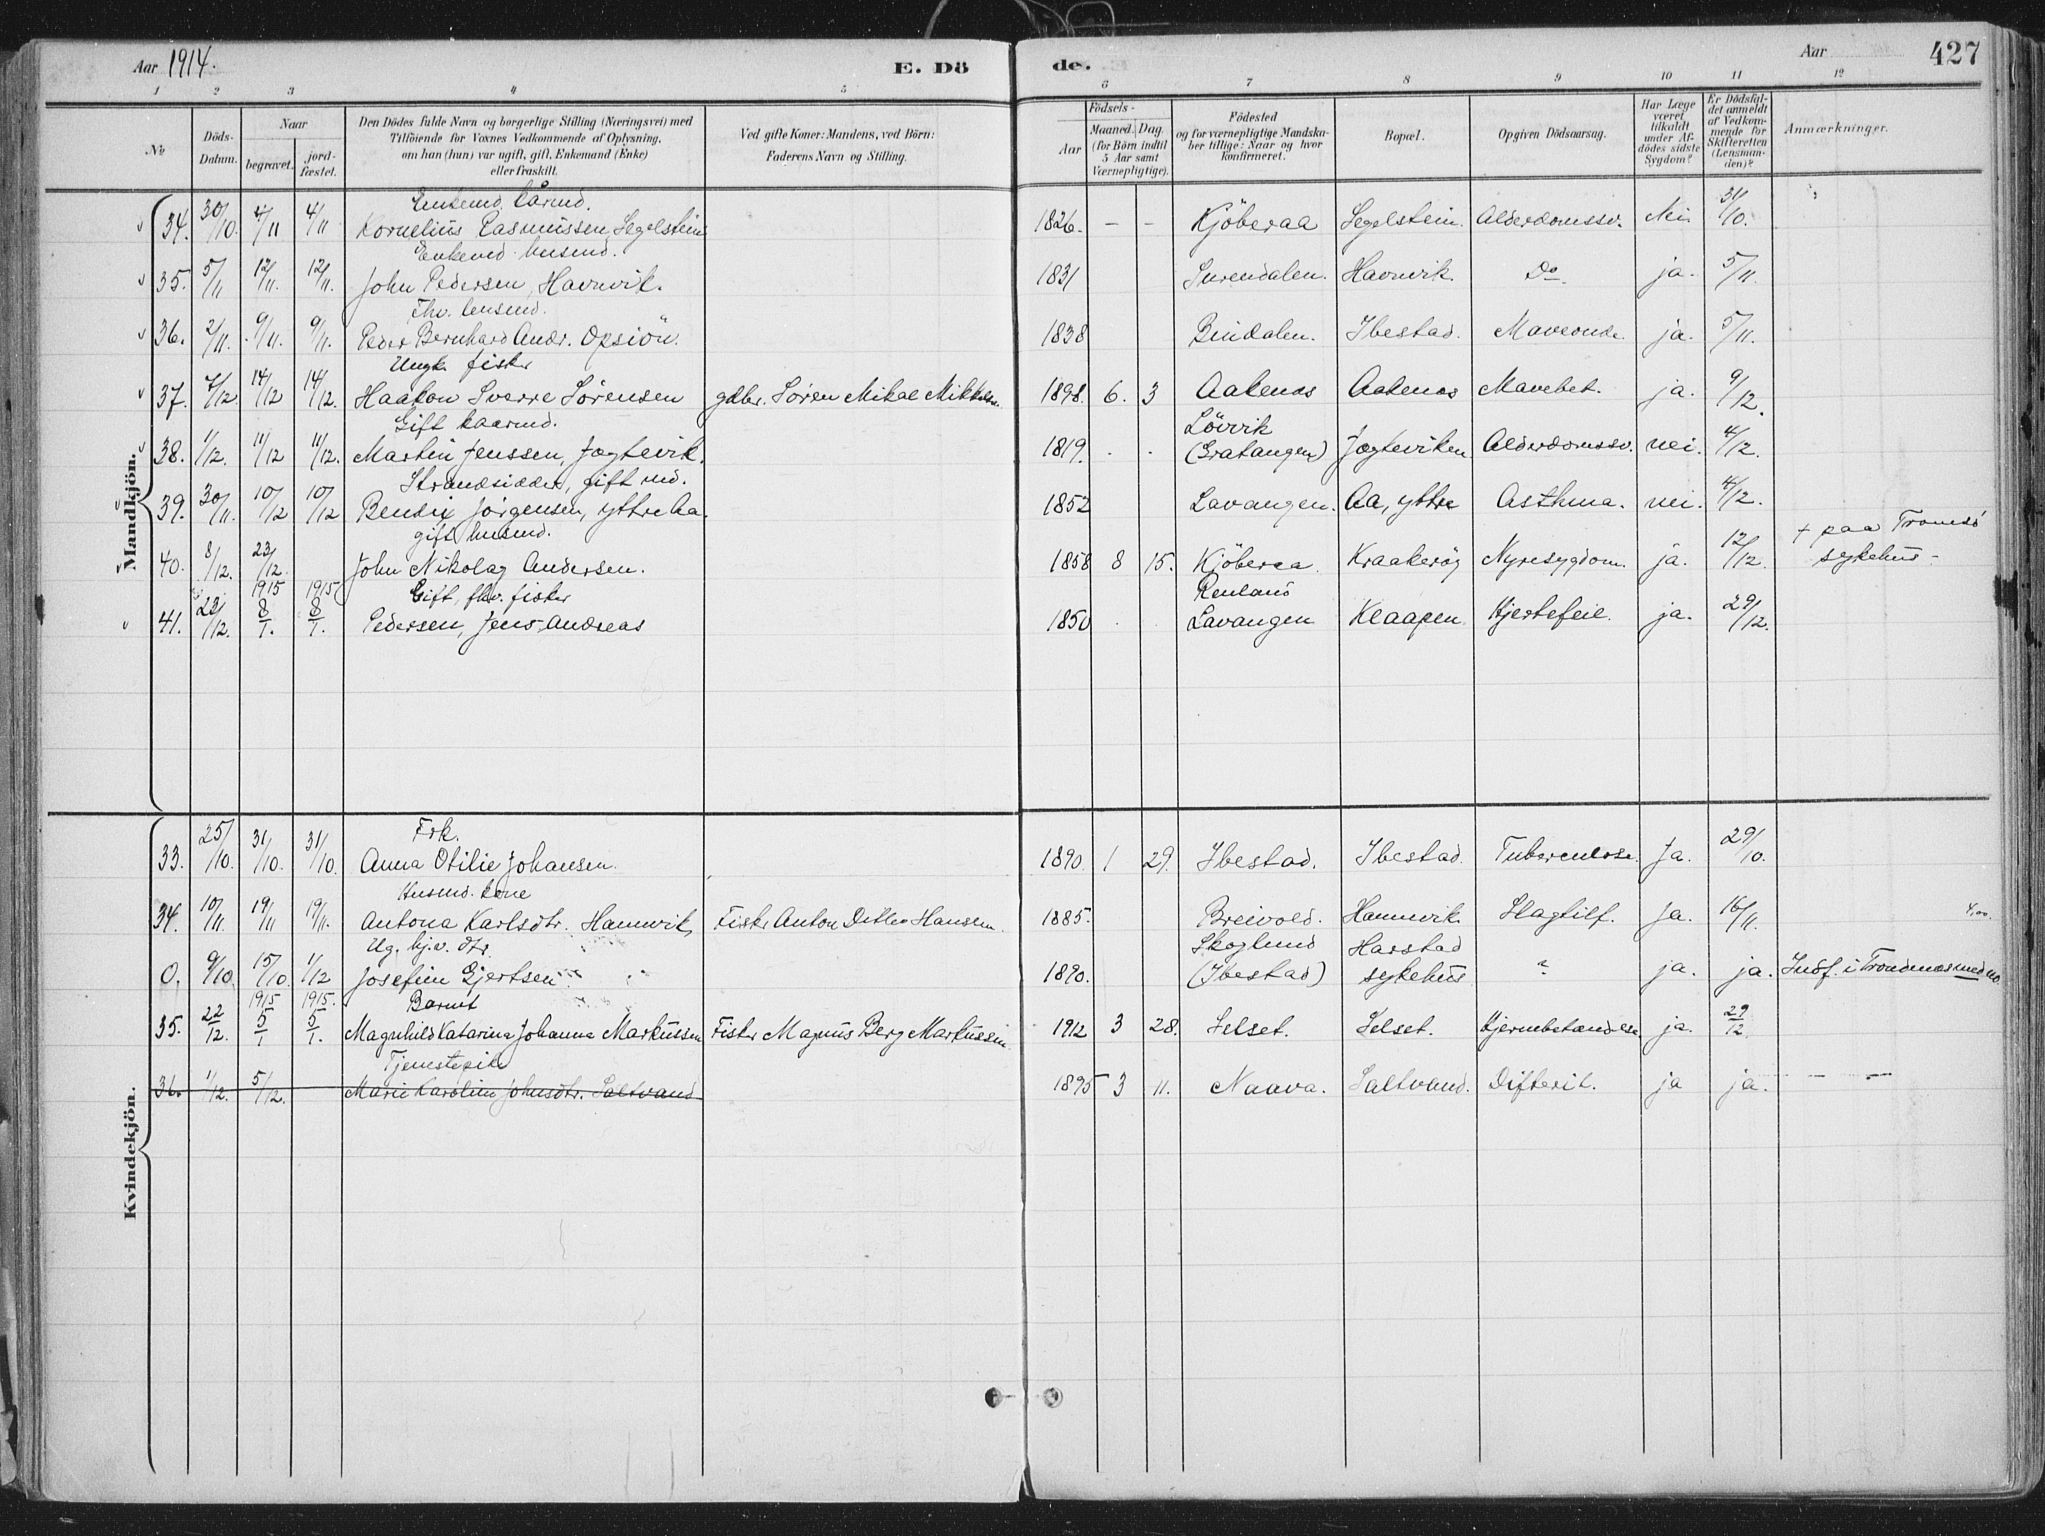 Aar 1914. E. Dö de. Aar 427
1 2 3 4 5 6 7 8 9 10 11 12
No
Döds-Datum.
Naar
begravet.
jord-fæstet.
Den Dödes fulde Navn og borgerlige Stilling (Næringsvei) med
Tilföiende for Voxnes Vedkommende af Oplysning,
om han (hun) var ugift, gift, Enkemand (Enke)
eller fraskilt.
Ved gifte Koner: Mandens, ved Börn:
Faderens Navn og Stilling.
Födsels-
Aar
Maaned. Dag.
(for Börn indtil
5 Aar samt
Værnepligtige).
Födested
og for værnepligtige Mandska-
ber tillige: Naar og hvor
konfirmeret.
Bopæl.
Opgiven Dödsaarsag.
Har Læge
været
tilkaldt
under Af-
dödes sidste
Sygdom?
Er Dödsfal-
det anmeldt
af Vedkom-
mende for
Skifteretten
(Lensman-
den)?
Anmærkninger.
Mandkjön.
Kårmd.
34. 30/10. 4/11 4/11 Kornelius Rasmussen, Segelstein 1826. – – Kjöberaa Segelstein. Alderdomssv. Nei. 31/10.
Enkemd. husmd.
35. 5/11 12/11. 12/11. John Pedersen, Havnvik. 1831 Surendalen. Havnvik. Do. ja. 5/11.
Fhv.
36. 2/11. 9/11. 9/11. Peder Bernhard Andr. Opsiön. 1838 Bindalen. Ibestad. ja. 5/11.
Ungk. fisker
37. 7/12. 14/12 14/12. Haakon Sverre Sørensen gdbr. Søren Mikal Mikkelsen. 1898. 6. 3 Aakenes Aakenes Mavebet. ja. 9/12.
Gift kaarmd. Lövvik
38. 1/12. 11/12 11/12. Martin Jenssen, Jægtevik. 1819. . . (Gratangen) Jægteviken Alderdomssv. nei. 4/12.
Strandsidder, gift md.
39. 30/11. 10/12 10/12 Bendix Jörgensen, yttre Aa. 1852 Lavangen. Aa, yttre Asthma. nei. 4/12.
gift husmd. + paa Tromsö
40. 8/12. 23/12. John Nikolay Andersen. 1858 8 15. Kjöberaa Kraakerøy Nyresygdom. ja. 12/12. sykehus –
1915 1915 Gift, fhv. fisker
41. 23/12. 8/1. 8/1. Pedersen, Jens Andreas 1850 . . Lavangen Klaapen. Hjertefeil. ja. 29/12.
Kvindekjön.
Frk.
33. 25/10. 31/10. 31/10. Anna Otilie Johansen. 1890. 1 29. Ibestad. Ibestad. Tuberculose. Ja. 29/10.
Husmd. kone
34. 10/11. 19/11 19/11. Antona Karlsdtr. Hamnvik Fisker Anton Detlev Hansen. 1885. Breivold. Hamnvik Slagtilf. Ja. 16/11.
Ug. hj.v. dtr. Skoglund Harstad
0. 9/10. 15/10. 1/12 Josefine Gjertsen 1890. (Ibestad) sykehus ? ja. ja. Indf. i Trondenes med no.
1915 1915. Barnet
35. 22/12. 5/1 5/1. Magnhild Katarina Johanna Markussen Fisker Magnus Berg Markussen. 1912 3 28. Selset. Selset. Hjernebetændelse ja. 29/12.
Tjenestepike
36. 1/12. 5/12. Marie Karoline Johnsdtr. Saltvand 1895 3 11. Naava. Saltvand. Difterit. ja ja. — —